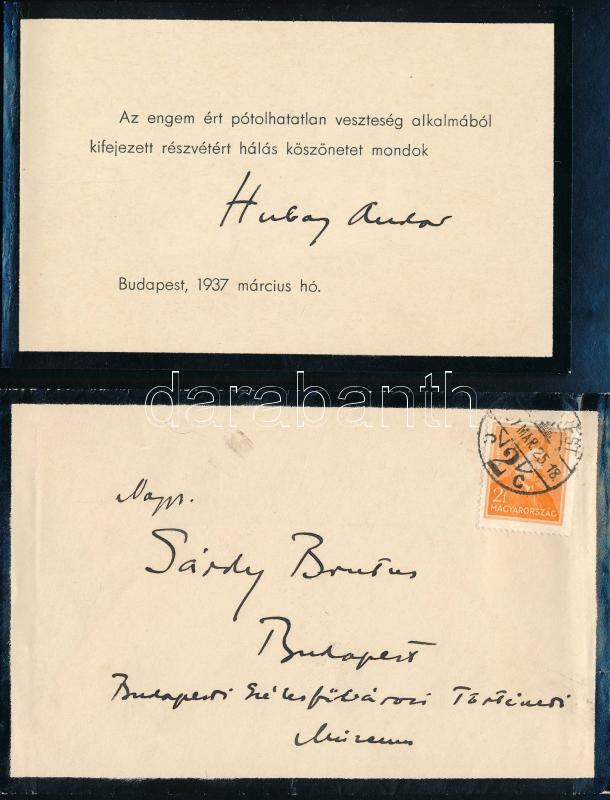 Az engem ért pótolhatatlan veszteség alkalmából
kifejezett részvétért hálás köszönetet mondok
Hubay Andor
Budapest, 1937 március hó.
darabanth
37 MÁR. 25. 18
2
C
2f
MAGYARORSZÁG
Nags.
Sárdy Brutus
Budapest
Budapesti Székesfővárosi Történeti
Múzeum